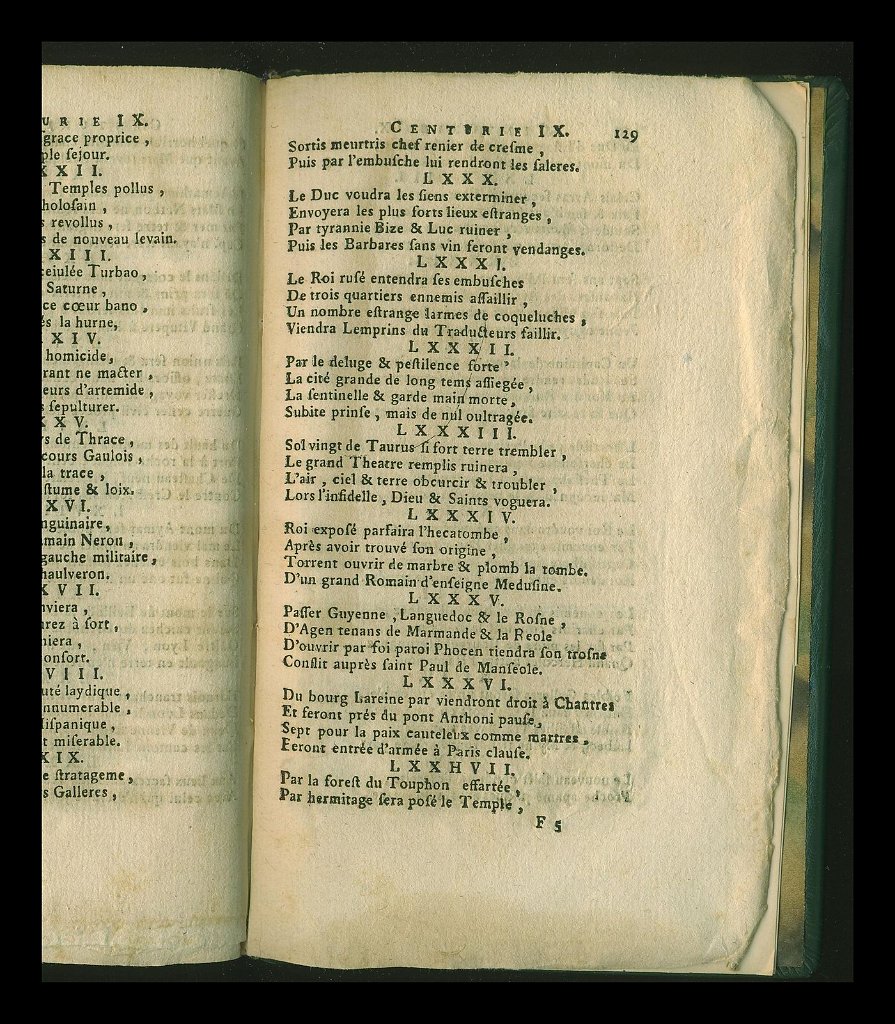 URIE IX.
grace proprice,
ple ſejour.
XXII.
Temples pollus,
holoſain,
s revollus,
s de nouveau levain.
XIII.
ceiulée Turbao,
Saturne,
ce cœur bano,
és la hurne,
XIV.
homicide,
rant ne macter,
eurs d'artemide,
s ſepulturer.
XXV.
rs de Thrace,
cours Gaulois,
la trace,
ſtume & loix.
XVI.
nguinaire,
main Neron,
gauche militaire,
haulveron.
XVII.
nviera,
rez à ſort,
niera,
onſort.
VIII.
uté laydique,
nnumerable,
Hiſpanique,
t miſerable.
XIX.
e ſtratageme,
s Galleres,
CENTURIE IX. 129
Sortis meurtris chef renier de creſme,
Puis par l'embuſche lui rendront les ſaleres.
LXXX.
Le Duc voudra les ſiens exterminer,
Envoyera les plus forts lieux eſtranges,
Par tyrannie Bize & Luc ruiner,
Puis les Barbares ſans vin feront vendanges.
LXXXI.
Le Roi ruſé entendra ſes embuſches
De trois quartiers ennemis aſſaillir,
Un nombre eſtrange larmes de coqueluches,
Viendra Lemprins du Traducteurs faillir.
LXXXII.
Par le deluge & peſtilence forte
La cité grande de long tems aſſiegée,
La ſentinelle & garde main morte,
Subite prinſe, mais de nul oultragée.
LXXXIII.
Sol vingt de Taurus ſi fort terre trembler,
Le grand Theatre remplis ruinera,
L'air, ciel & terre obcurcir & troubler,
Lors l'infidelle, Dieu & Saints voguera.
LXXXIV.
Roi expoſé parfaira l'hecatombe,
Après avoir trouvé ſon origine,
Torrent ouvrir de marbre & plomb la tombe.
D'un grand Romain d'enſeigne Meduſine.
LXXXV.
Paſſer Guyenne, Languedoc & le Roſne,
D'Agen tenans de Marmande & la Reole
D'ouvrir par foi paroi Phocen tiendra ſon troſne
Conflit auprès ſaint Paul de Manſeole.
LXXXVI.
Du bourg Lareine par viendront droit à Chantres
Et feront prés du pont Anthoni pauſe,
Sept pour la paix cauteleux comme martres,
Feront entrée d'armée à Paris clauſe.
LXXHVII.
Par la foreſt du Touphon eſſartée,
Par hermitage ſera poſé le Temple,
F 5